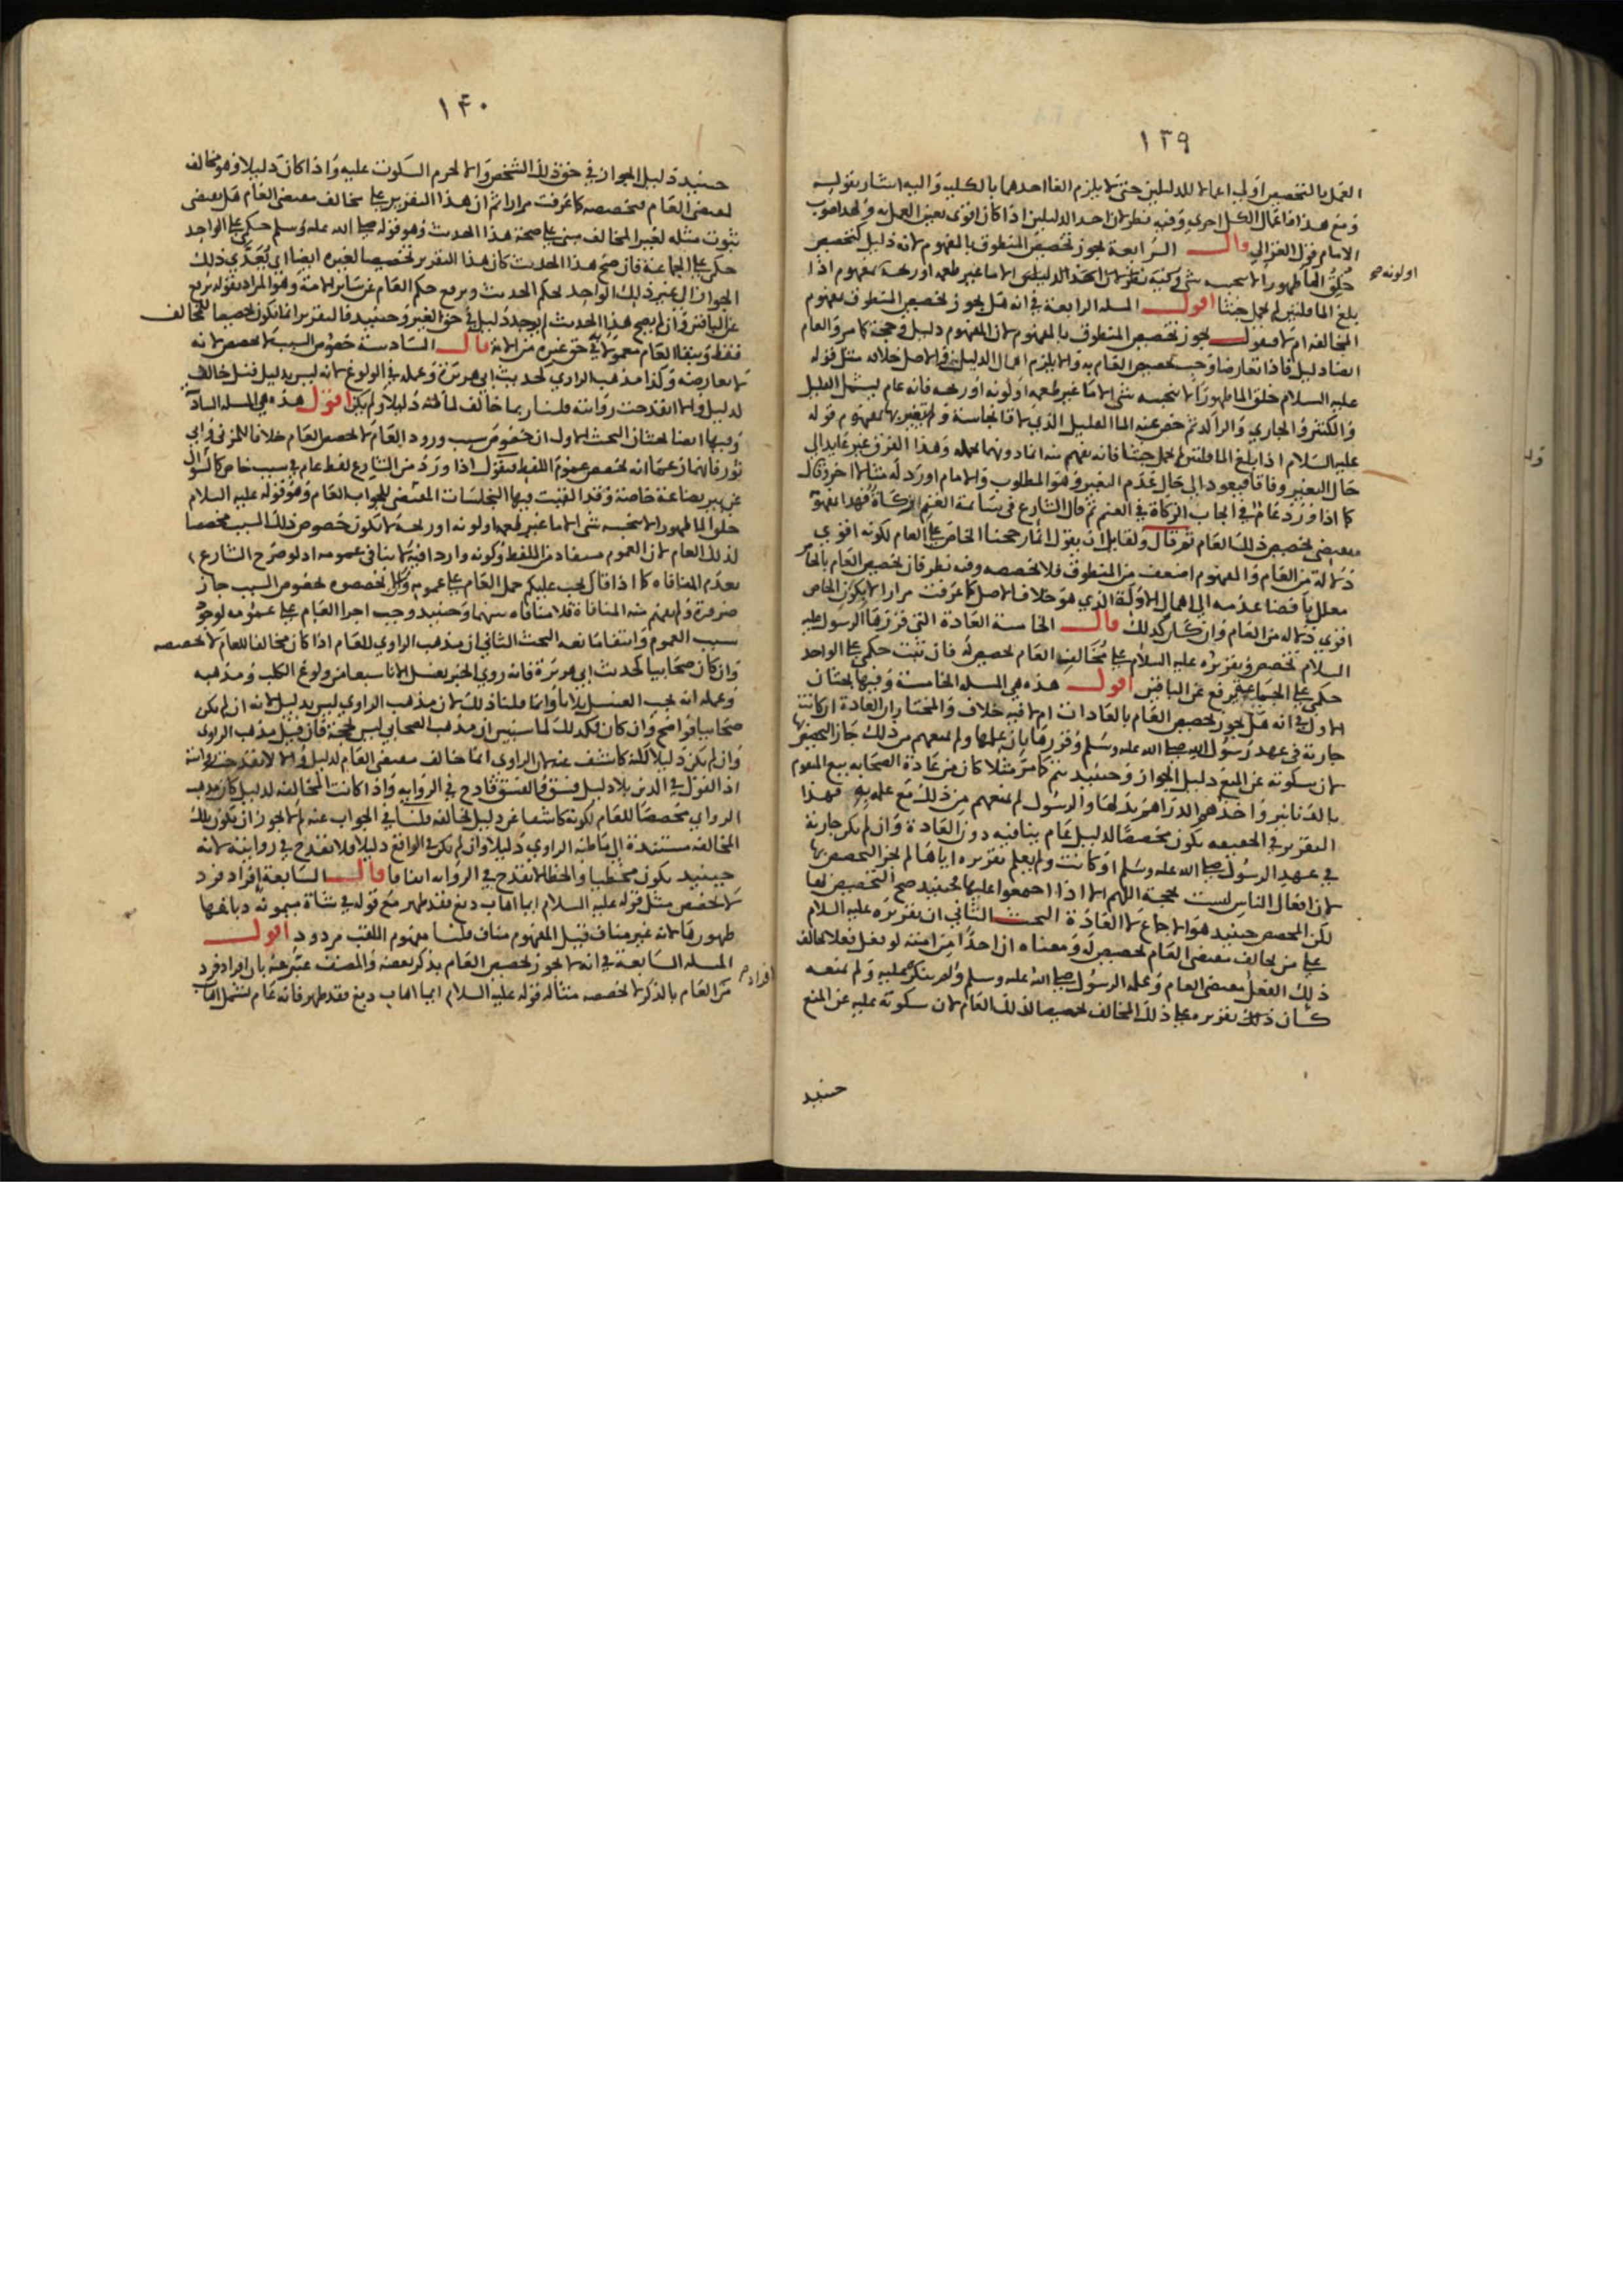 ١٣٩
العمل بالتخصيص اولى اعمالا للدليلين حتى لا يلزم الغا احدهما بالكلية واليه اشار بقوله
ومع هذا فاعمال الكل احرى وفيه نظر لان احد الدليلين اذا كان اقوى تعين العمل به
الامام قول الغزالي قال الرابعة يجوز تخصيص المنطوق بالمفهوم لانه دليل كتخصيص
خلق الما طهورا لا ينجسه شي الا ما غير طعمه او ريحه بمفهوم اذا
اولونه صح
بلغ الما قلتين لم يحمل خبثا اقول المسله الرابعة في انه هل يجوز تخصيص المنطوق بمفهوم
المخالفة ام لا فنقول يجوز تخصيص المنطوق بالمفهوم لان المفهوم دليل وحجة كما مر والعام
ايضا دليل فاذا تعارضا وجب تخصيص العام به والا يلزم اهمال الدليلين والاصل خلافه مثل قوله
عليه السلام خلق الما طهورا لا ينجسه شي الا ما غير طعمه او لونه او ريحه فانه عام ليشمل القليل
والكثير والجاري والراكد ثم خص عنه الما القليل الذي لاقا نجاسة ولم يتغير بها بمفهوم قوله
عليه السلام اذا بلغ الما قلتين لم يحمل خبثا فانه يفهم منه ان ما دونهما يحمله وهذا الفرق غير عايد الى
حال التغير وفاقا فيعود الى حال عدم التغير وهو المطلوب والامام اورد له مثالا اخر وقال
كما اذا ورد عام في ايجاب الزكاة في الغنم ثم قال الشارع في سائمة الغنم زكاة فهذا
يقتضي تخصيص ذلك العام ثم قال ولقايل ان يقول انما رجحنا الخاص على العام لكونه اقوى
دلالة من العام والمفهوم اضعف من المنطوق فلا تخصصه وفيه نظر فان تخصيص العام بالخاص
معلل بافضا عدمه الى اهمال الادلة الذي هو خلاف الاصل كما عرفت مرارا لا بكون الخاص
اقوى دلالة من العام وان كان كذلك قال الخامسة العادة التي قررها الرسول عليه
السلام تخصص وتقريره عليه السلام على مخالف العام تخصيص له فان ثبت حكمي على الواحد
حكمي على الجماعة يرفع عن الباقين اقول هذه هي المسله الخامسة وفيها بحثان
الاول في انه هل يجوز تخصيص العام بالعادات ام لا فيه خلاف والمختار ان العادة ان كانت
جارية في عهد رسول الله صلى الله عليه وسلم وقررها بان علمها ولم يمنعهم من ذلك جاز التخصيص بها
لان سكوته عن المنع دليل الجواز وحينيد كما مر مثلا كان من عادة الصحابه بيع
بالدنانير واخذهم الدراهم بدلها والرسول لم يمنعهم من ذلك مع علمه به فهذا
التقرير في الحقيقه يكون مخصصا لدليل عام ينافيه دون العادة وان لم تكن جارية
في عهد الرسول صلى الله عليه وسلم او كانت ولم يعلم تقريره اياها لم يجز التخصيص بها
لان افعال الناس ليست بحجة اللهم الا اذا اجمعوا عليها فحينيد صح التخصيص بها
لكن المخصص حينيد هو الاجماع لا العادة البحث الثاني ان تقريره عليه السلام
على من يخالف مقتضى العام تخصيص له ومعناه ان احدا من امته لو فعل فعلا يخالف
ذلك الفعل مقتضى العام وعلمه الرسول صلى الله عليه وسلم ولم ينكر عليه ولم يمنعه
كان ذلك تقريره على ذلك المخالف تخصيصا لذلك العام لان سكوته عليه عن المنع
حينيد
١٤٠
حينيد دليل الجواز في حق ذلك الشخص والا لحرم السكوت عليه واذا كان دليلا وهو مخالف
لمقتضى العام فتخصصه كما عرفت مرارا ثم ان هذا التقرير على مخالف مقتضى العام هل يقتضي
ثبوت مثله لغير المخالف يبنى على صحة هذا الحديث وهو قوله صلى الله عليه وسلم حكمي على الواحد
حكمي على الجماعة فان صح هذا الحديث كان هذا التقرير تخصيصا لغيره ايضا اي يعدي ذلك
الجواز الى غير ذلك الواحد بحكم الحديث ويرفع حكم العام عن ساير الامة وهو المراد بقوله يرفع
عن الباقين وان لم يصح هذا الحديث لم يوجد دليل في حق الغير وحينيد فالتقرير انما يكون تخصيصا للمخالف
فقط ويبقا العام معمولا في حق غيره من الامة قال السادسة خصوص السبب لا يخصص لانه
لا يعارضه وكذا مذهب الراوي كحديث ابي هريرة وعمله في الولوغ لانه ليس بدليل قيل خالف
لدليل والا انقدحت روايته قلنا ربما خالف لما ظنه دليلا ولم يكن اقول هذه هي المسله السادسة
وفيها ايضا بحثان البحث الاول ان خصوص سبب ورود العام لا يخصص العام خلافا للمزني وابي
ثور فانهما زعما انه يخصص عموم اللفظ فنقول اذا ورد من الشارع لفظ عام في سبب خاص كالسؤال
عن بير بضاعة خاصة وقد القيت فيها النجاسات المقتضي للجواب العام وهو قوله عليه السلام
خلق الما طهورا لا ينجسه شي الا ما غير طعمه او لونه او ريحه لا يكون خصوص ذلك السبب مخصصا
لذلك العام لان العموم مستفاد من اللفظ وكونه واردا فيه لا ينافي عمومه اذ لو صرح الشارع
بعدم المنافاه كما اذا قال يجب عليكم حمل العام على عمومه ولا تخصصوه بخصوص السبب جاز
ضرورة ولم يفهم منه المنافاة فلا منافاه بينهما وحينيد وجب اجرا العام على عمومه لوجود
سبب العموم وانتفا مانعه البحث الثاني ان مذهب الراوي للعام اذا كان مخالفا للعام لا يخصصه
وان كان صحابيا كحديث ابي هريرة فانه روى الخبر بغسل الانا سبعا من ولوغ الكلب ومذهبه
وعمله انه يجب الغسل ثلاثا وانما قلنا ذلك لان مذهب الراوي ليس بدليل لانه ان لم يكن
صحابيا فواضح وان كان فكذلك لما سنبين ان مذهب الصحابي ليس بحجة فان قيل مذهب الراوي
وان لم يكن دليلا لكنه كاشف عنه لان الراوي انما خالف مقتضى العام لدليل والا لانقدحت روايته
اذ القول في الدين بلا دليل فسق والفسق قادح في الروايه واذا كانت المخالفة لدليل كان مذهب
الراوي مخصصا للعام لكونه كاشفا عن دليل يخالفه قلنا في الجواب عنه لم لا يجوز ان يكون تلك
المخالفة مستندة الى ما ظنه الراوي دليلا وان لم يكن في الواقع دليلا ولا يقدح في روايته لانه
حينيد يكون مخطيا والخطا لا يقدح في الروايه اتفاقا قال السابعة افراد فرد
لا يخصص مثل قوله عليه السلام ايما اهاب دبغ فقد طهر مع قوله في شاة ميمونة دباغها
طهورها لانه غير مناف قيل المفهوم مناف قلنا مفهوم اللقب مردود اقول
المسله السابعة في انه لا يجوز تخصيص العام بذكر بعضه والمصنف عبر عنه بان افراد فرد
من العام بالذكر لا يخصصه مثاله قوله عليه السلام ايما اهاب دبغ فقد طهر فانه عام يشمل
افراد